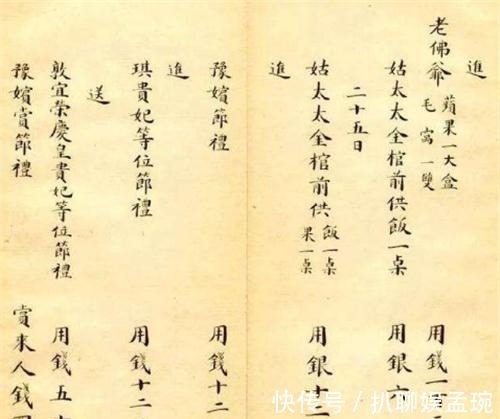 進
老佛爺 蘋果一大盒 毛窩一雙 用錢一
姑太太全棺前供飯一桌 用銀六
二十五日
姑太太全棺前供 飯一桌 果一桌 用銀十
進
豫嬪節禮 用錢十二
進
琪貴妃等位節禮 用錢十二
送
敦宜榮慶皇貴妃等位節禮 用錢五
豫嬪賞節禮 賞來人錢
快传号/扒聊娱孟琬